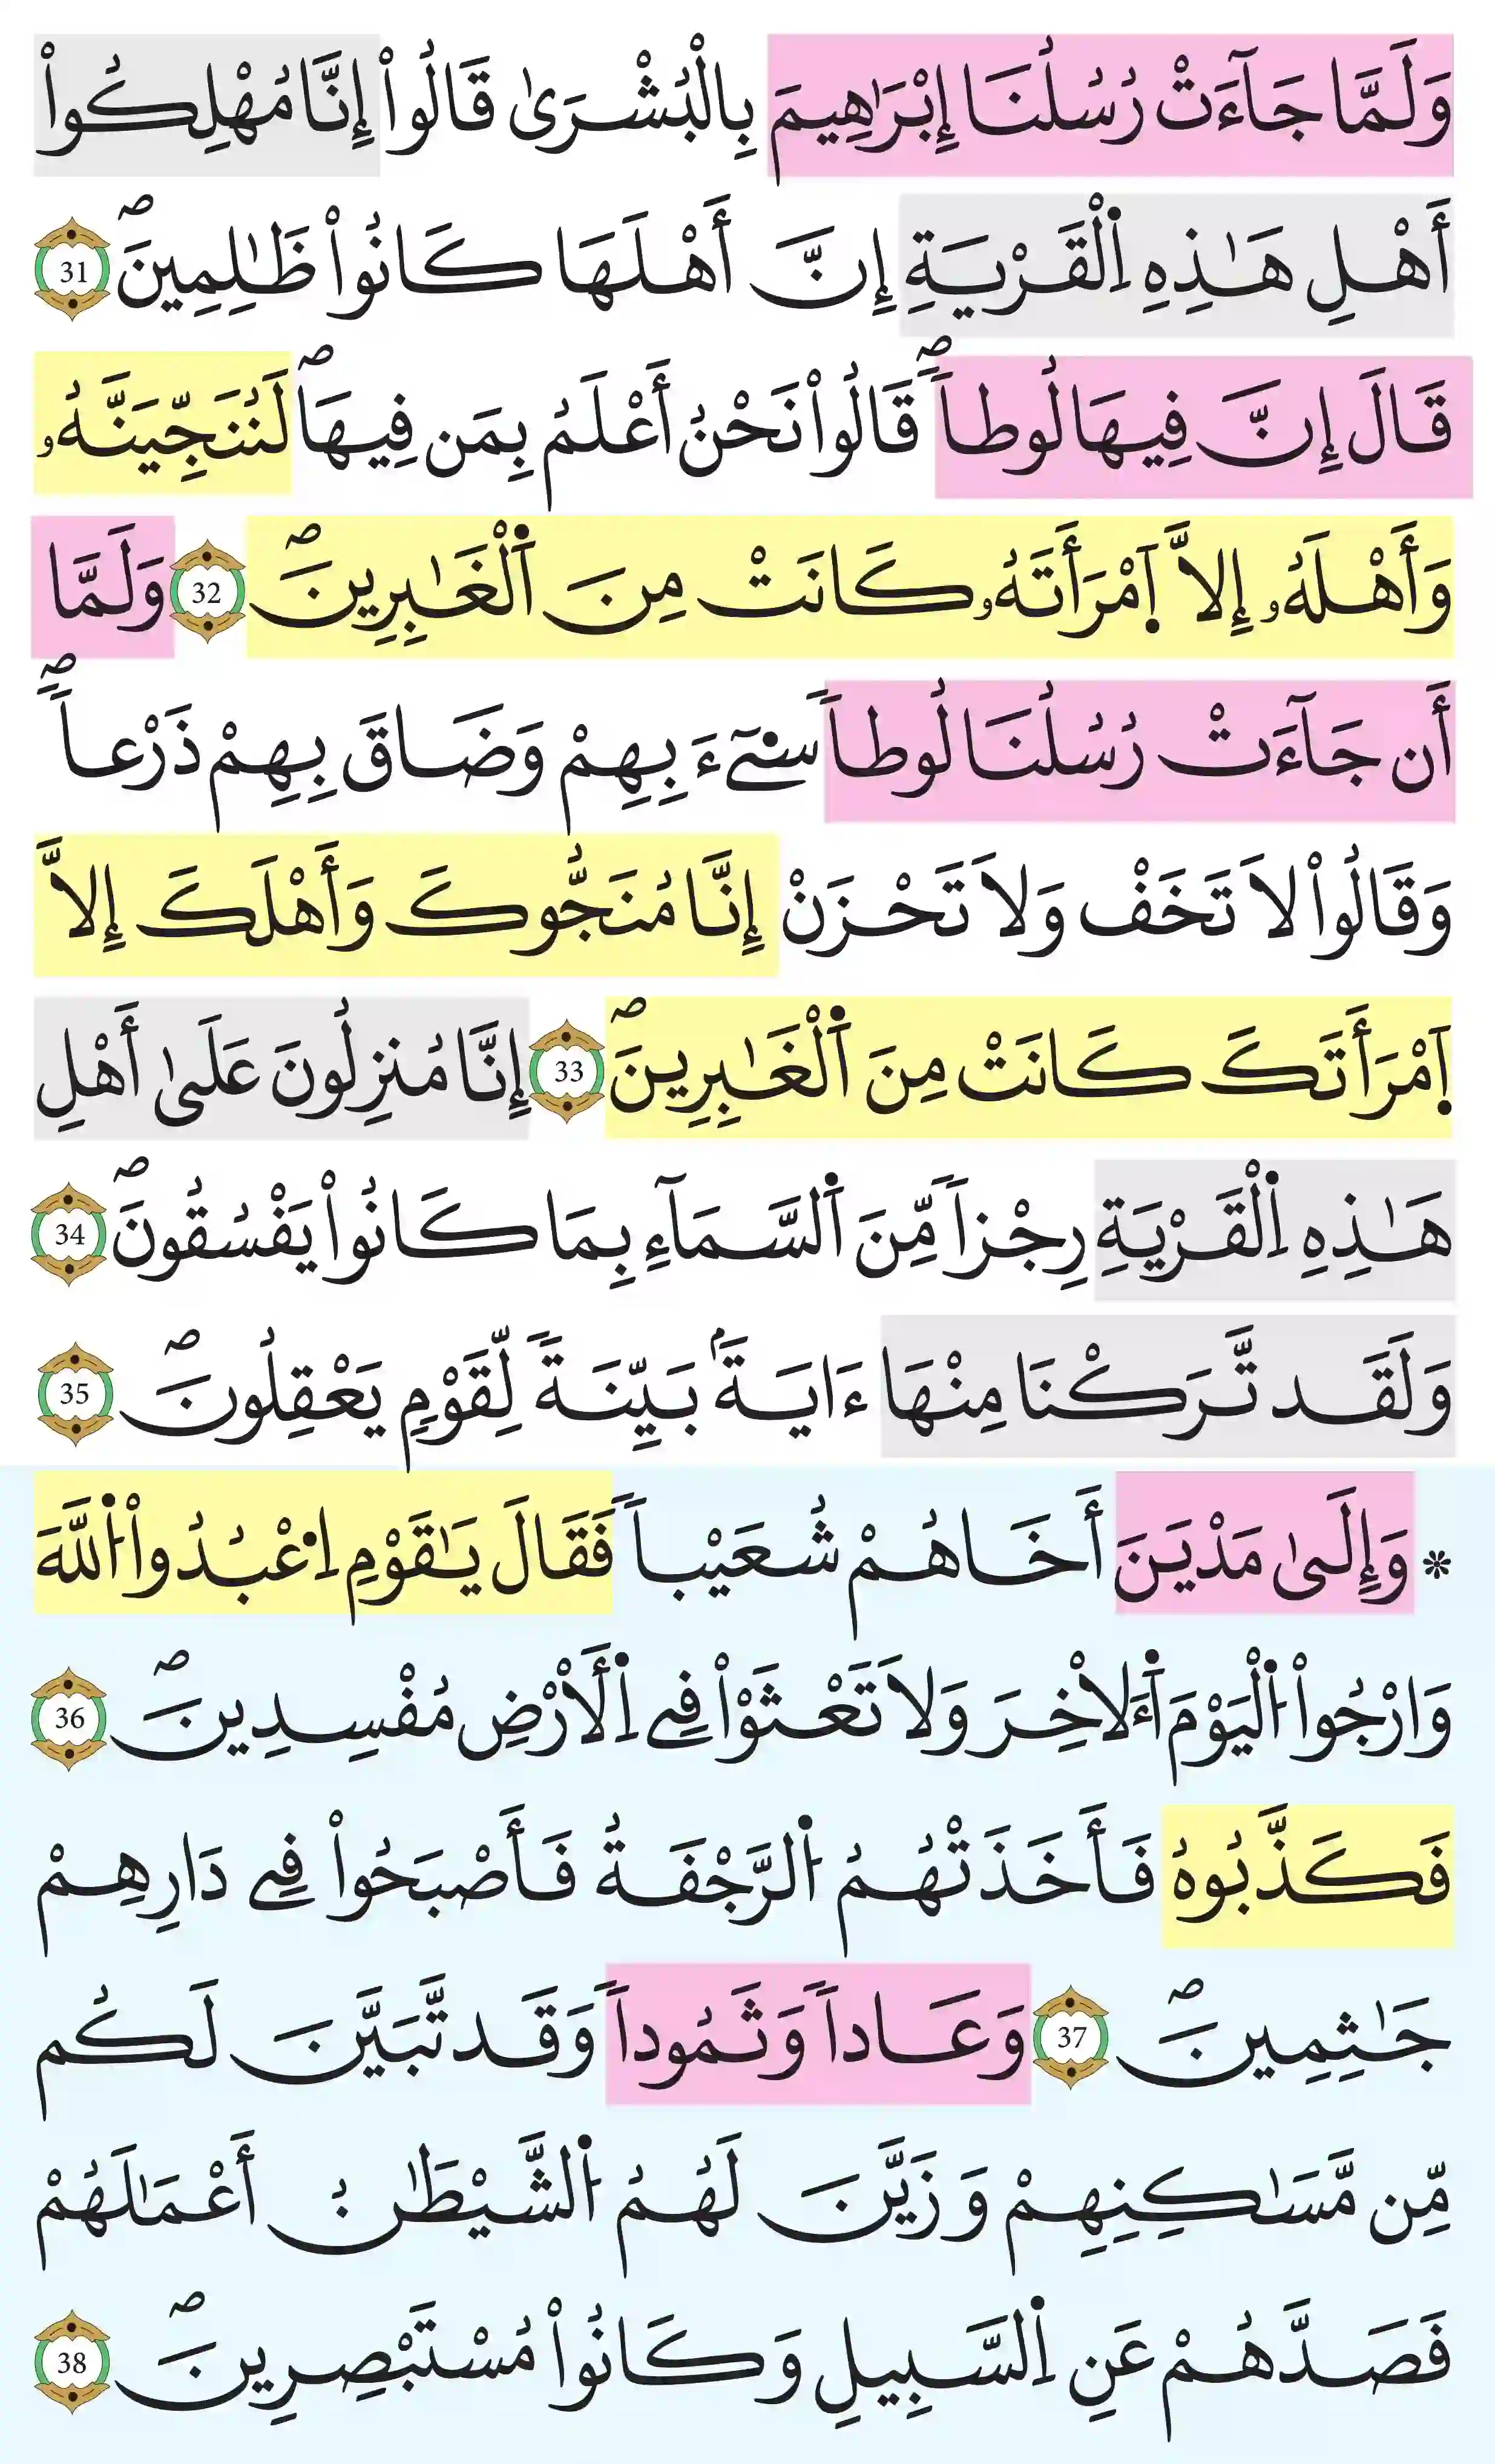 وَلَمَّا جَآءَتْ رُسُلُنَا إِبْرَٰهِيمَ بِالْبُشْرَىٰ قَالُواْ إِنَّا مُهْلِكُواْ
أَهْلِ هَٰذِهِ اِ۬لْقَرْيَةِ إِنَّ أَهْلَهَا كَانُواْ ظَٰلِمِينَۖ 31
قَالَ إِنَّ فِيهَا لُوطاٗۖ قَالُواْ نَحْنُ أَعْلَمُ بِمَن فِيهَاۖ لَنُنَجِّيَنَّهُۥ
وَأَهْلَهُۥ إِلَّا اَ۪مْرَأَتَهُۥ كَانَتْ مِنَ اَ۬لْغَٰبِرِينَۖ 32 وَلَمَّا
أَن جَآءَتْ رُسُلُنَا لُوطاٗ سِےٓءَ بِهِمْ وَضَاقَ بِهِمْ ذَرْعاٗۖ
وَقَالُواْ لَا تَخَفْ وَلَا تَحْزَنْ إِنَّا مُنَجُّوكَ وَأَهْلَكَ إِلَّا
اَ۪مْرَأَتَكَ كَانَتْ مِنَ اَ۬لْغَٰبِرِينَۖ 33 إِنَّا مُنزِلُونَ عَلَىٰ أَهْلِ
هَٰذِهِ اِ۬لْقَرْيَةِ رِجْزاٗ مِّنَ اَ۬لسَّمَآءِ بِمَا كَانُواْ يَفْسُقُونَۖ 34
وَلَقَد تَّرَكْنَا مِنْهَا ءَايَةَۢ بَيِّنَةٗ لِّقَوْمٖ يَعْقِلُونَۖ 35
* وَإِلَىٰ مَدْيَنَ أَخَاهُمْ شُعَيْباٗ فَقَالَ يَٰقَوْمِ اِ۟عْبُدُواْ اُ۬للَّهَ
وَارْجُواْ اُ۬لْيَوْمَ اَ۬ءَلَاخِرَ وَلَا تَعْثَوْاْ فِے اِ۬لَارْضِ مُفْسِدِينَۖ 36
فَكَذَّبُوهُ فَأَخَذَتْهُمُ اُ۬لرَّجْفَةُ فَأَصْبَحُواْ فِے دَارِهِمْ
جَٰثِمِينَۖ 37 وَعَاداٗ وَثَمُوداٗ وَقَد تَّبَيَّنَ لَكُم
مِّن مَّسَٰكِنِهِمْ وَزَيَّنَ لَهُمُ اُ۬لشَّيْطَٰنُ أَعْمَٰلَهُمْ
فَصَدَّهُمْ عَنِ اِ۬لسَّبِيلِ وَكَانُواْ مُسْتَبْصِرِينَۖ 38